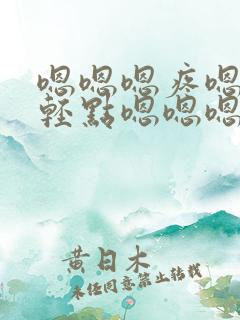 嗯嗯嗯疼嗯
轻點嗯嗯嗯
黄日木
未经同意禁止转载